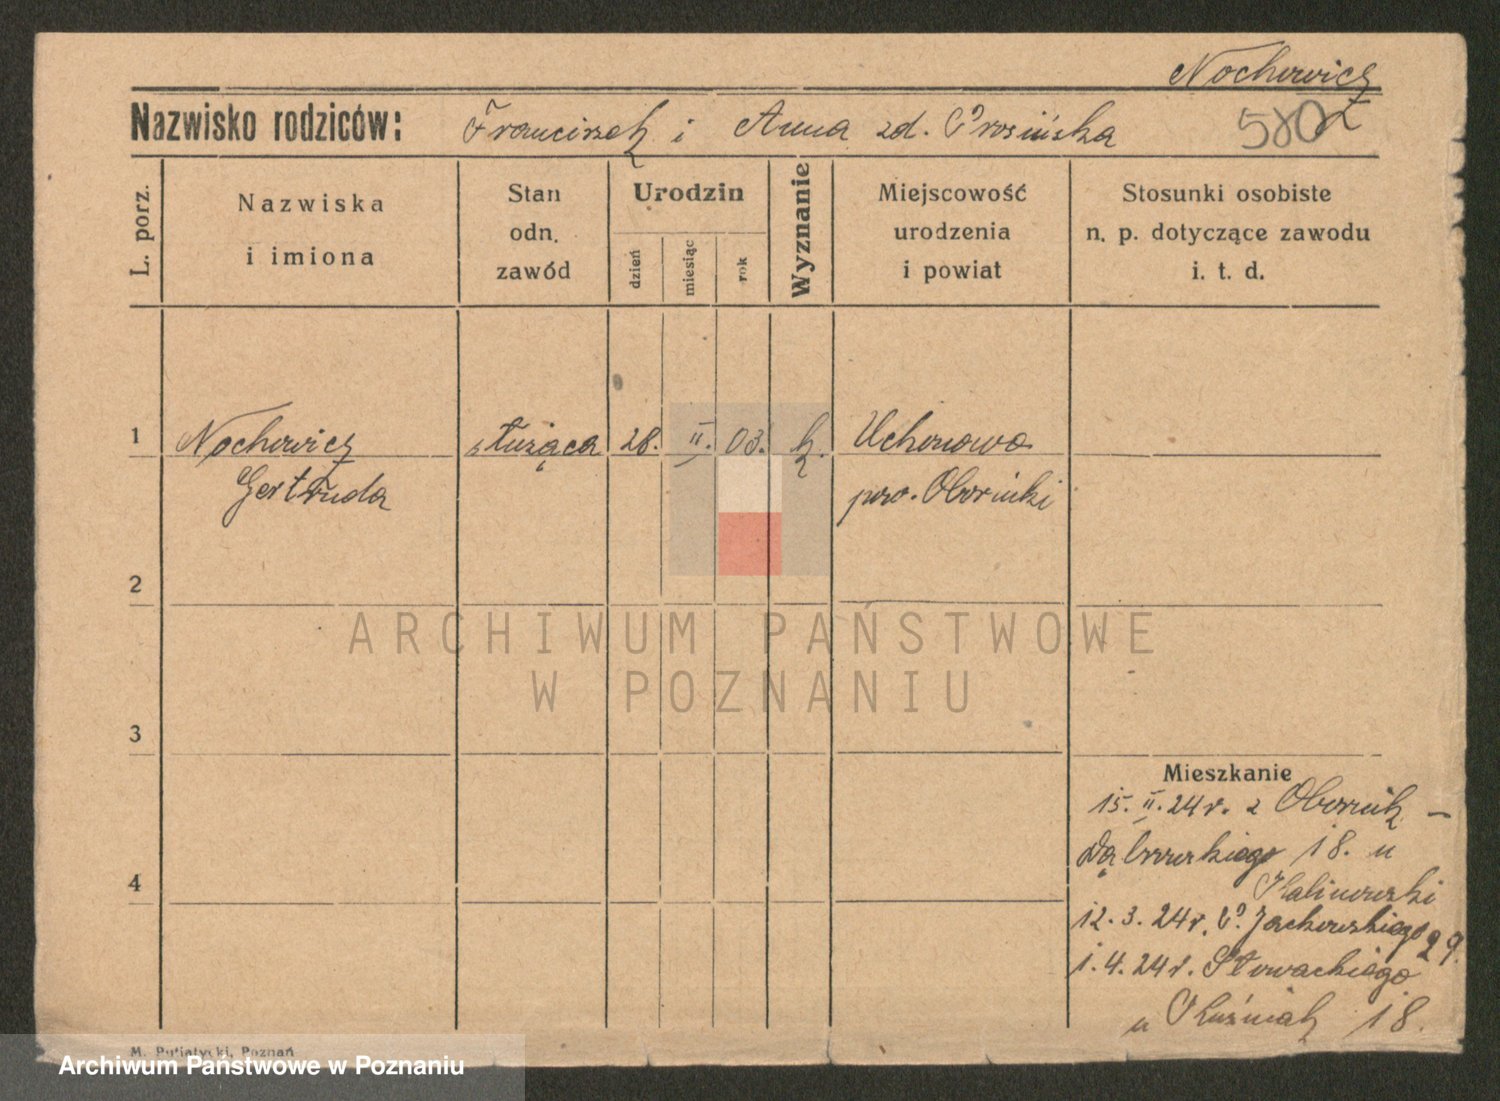 Nochowicz
Nazwisko rodziców: Franciszek i Anna zd. Prosińska
580
L. porz.
Nazwiska
i imiona
Stan
odn.
zawód
Urodzin
dzień
miesiąc
rok
Wyznanie
Miejscowość
urodzenia
i powiat
Stosunki osobiste
n. p. dotyczące zawodu
i. t. d.
1 Nochowicz służąca 28. II. 03. k. Uchorowo
Gertruda pow. Obornicki
2
ARCHIWUM PAŃSTWOWE
W POZNANIU
3
Mieszkanie
15. II. 24 r. z Obornik -
Dąbrowskiego 18. u
4
Kalinowski
12. 3. 24 r. P. Jackowskiego 29.
1. 4. 24 r. Słowackiego
u Kuśniak 18.
M. Putiatycki, Poznań
Archiwum Państwowe w Poznaniu